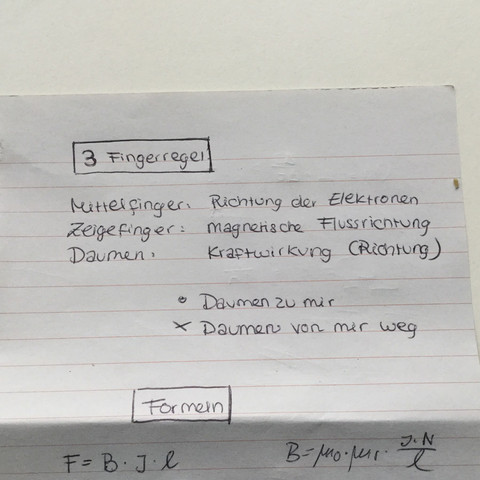 3 Fingerregel
Mittelfinger: Richtung der Elektronen
Zeigefinger: magnetische Flussrichtung
Daumen: Kraftwirkung (Richtung)
• Daumen zu mir
× Daumen von mir weg
Formeln
F = B · J · l
B = μ0 · μr · J·N / l